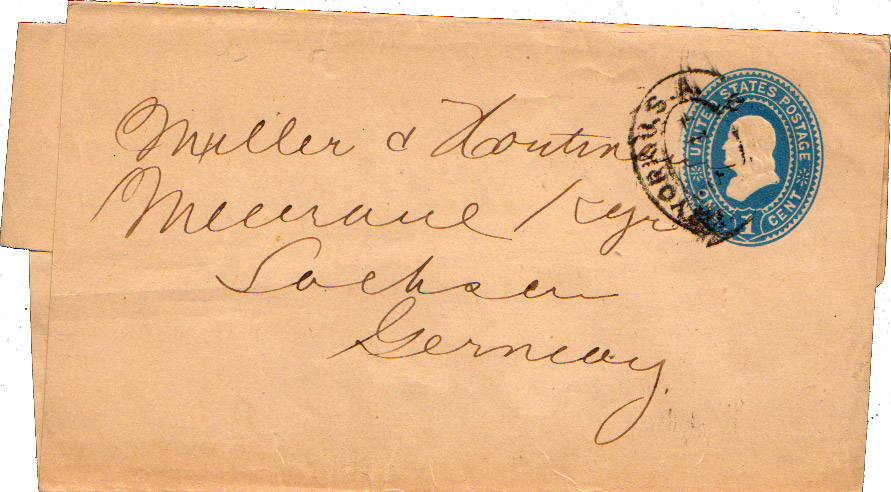 Muller & Hontin
Meerane / Kgr
Sachsen
Germany.
UNITED STATES POSTAGE
1 CENT
U.S.A.